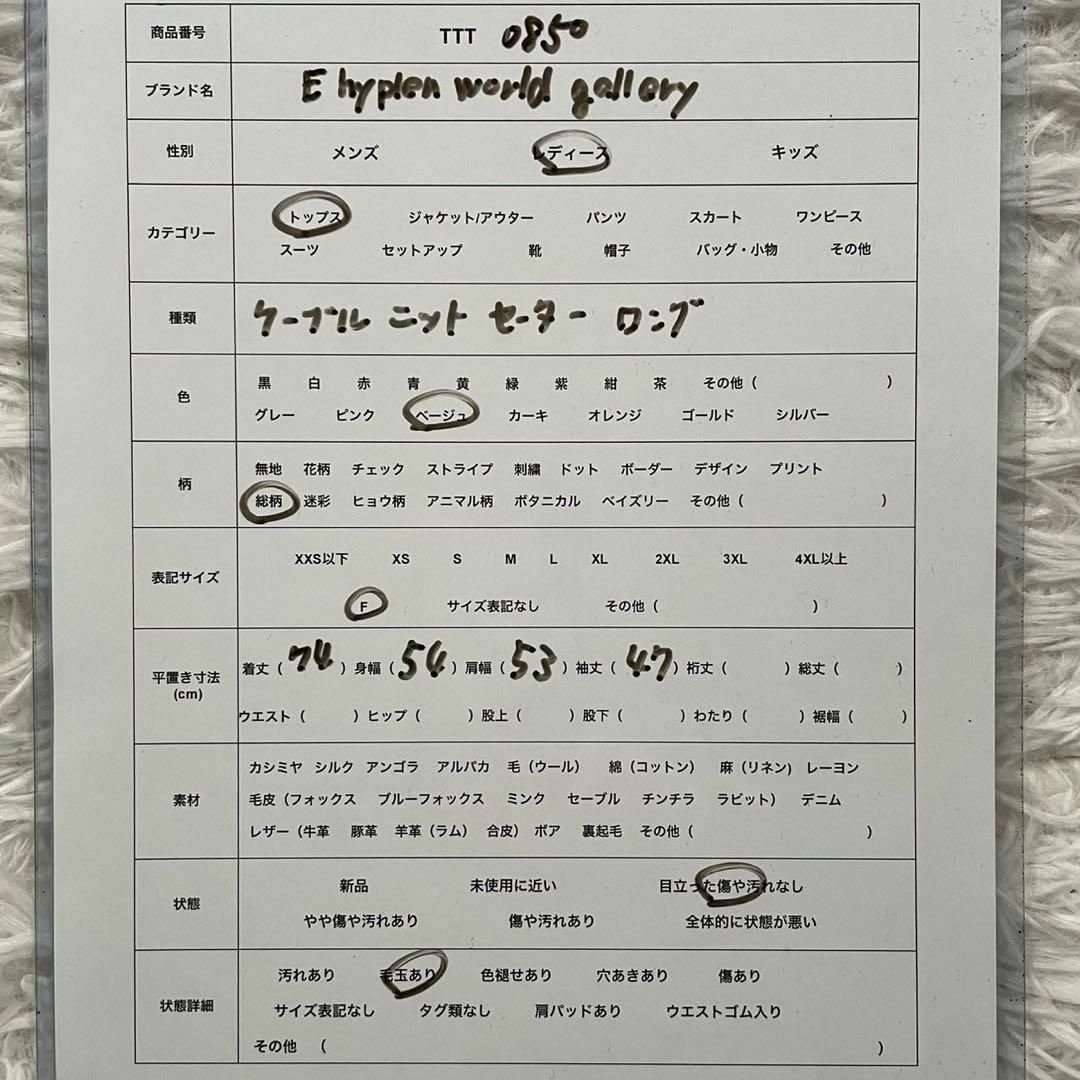 商品番号 TTT 0850
ブランド名 E hyplen world gallery
性別 メンズ レディース キッズ
カテゴリー トップス ジャケット/アウター パンツ スカート ワンピース
スーツ セットアップ 靴 帽子 バッグ・小物 その他
種類 ケーブル ニット セーター ロング
色 黒 白 赤 青 黄 緑 紫 紺 茶 その他（ ）
グレー ピンク ベージュ カーキ オレンジ ゴールド シルバー
柄 無地 花柄 チェック ストライプ 刺繍 ドット ボーダー デザイン プリント
総柄 迷彩 ヒョウ柄 アニマル柄 ボタニカル ペイズリー その他（ ）
表記サイズ XXS以下 XS S M L XL 2XL 3XL 4XL以上
F サイズ表記なし その他（ ）
平置き寸法 (cm) 着丈（74）身幅（54）肩幅（53）袖丈（47）裄丈（ ）総丈（ ）
ウエスト（ ）ヒップ（ ）股上（ ）股下（ ）わたり（ ）裾幅（ ）
素材 カシミヤ シルク アンゴラ アルパカ 毛（ウール） 綿（コットン） 麻（リネン） レーヨン
毛皮（フォックス ブルーフォックス ミンク セーブル チンチラ ラビット） デニム
レザー（牛革 豚革 羊革（ラム） 合皮） ボア 裏起毛 その他（ ）
状態 新品 未使用に近い 目立った傷や汚れなし
やや傷や汚れあり 傷や汚れあり 全体的に状態が悪い
状態詳細 汚れあり 毛玉あり 色褪せあり 穴あきあり 傷あり
サイズ表記なし タグ類なし 肩パッドあり ウエストゴム入り
その他 （ ）